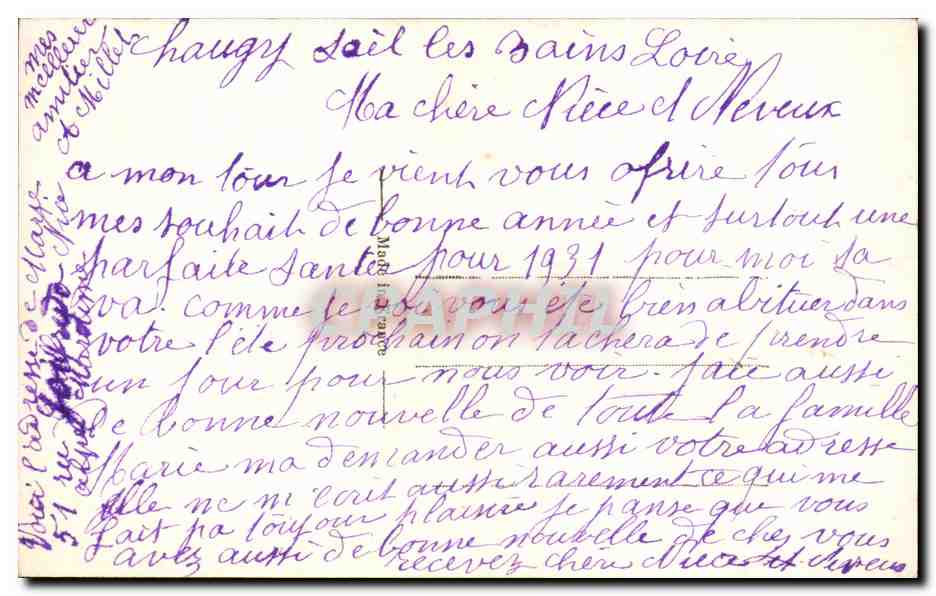 Chaugy Saël les Bains Loire
Ma chère Nièce et Neveux
a mon tour je vient vous ofrire tous
mes souhait de bonne année et surtout une
parfaite santé pour 1931 pour moi sa
va. comme je voi vous éte bien abituer dans
votre l'été prochain on tachera de prendre
un jour pour nous voir. j'aie aussi
de bonne nouvelle de toute la famille
Marie ma demander aussi votre adresse
elle ne m'écrit aussi rarement ce qui me
fait pa toujour plaisire je panse que vous
avez aussi de bonne nouvelle de chez vous
recevez chère Nièce et Neveux
mes meilleur
amitier
A Millet
Voici l'adresse de Marie
51 ru Nia
alpes Maritime
Made in France
CPAPHIL